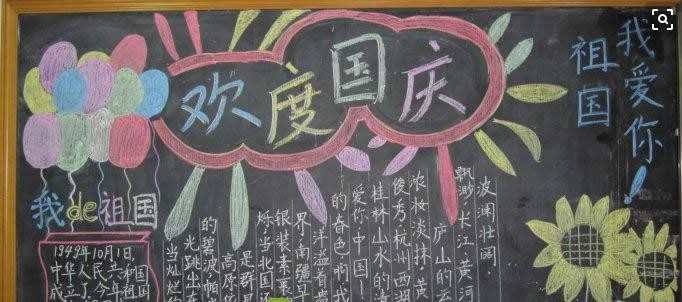 欢度国庆
我爱你
祖国！
我de祖国
1949年10月1日,
中华人民共和国
成立了.今年祖国
波澜壮阔.
飘渺.长江.黄河
庐山的云
浓妆淡抹.黄
俊秀.杭州西湖
桂林山水的清
爱你.中国！
的春色.啊.我
洋溢着
界.南疆早
银装素裹
烁.当北国还
是群
高原
的碧波帆
光跳出东
当灿烂的